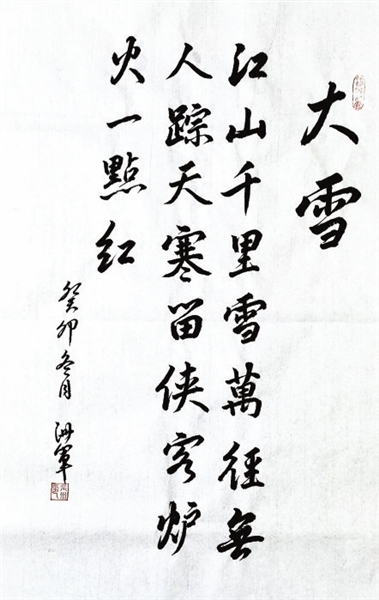 大雪
江山千里雪萬徑無
人踪天寒留侠客炉
火一點红
癸卯冬月 洲軍